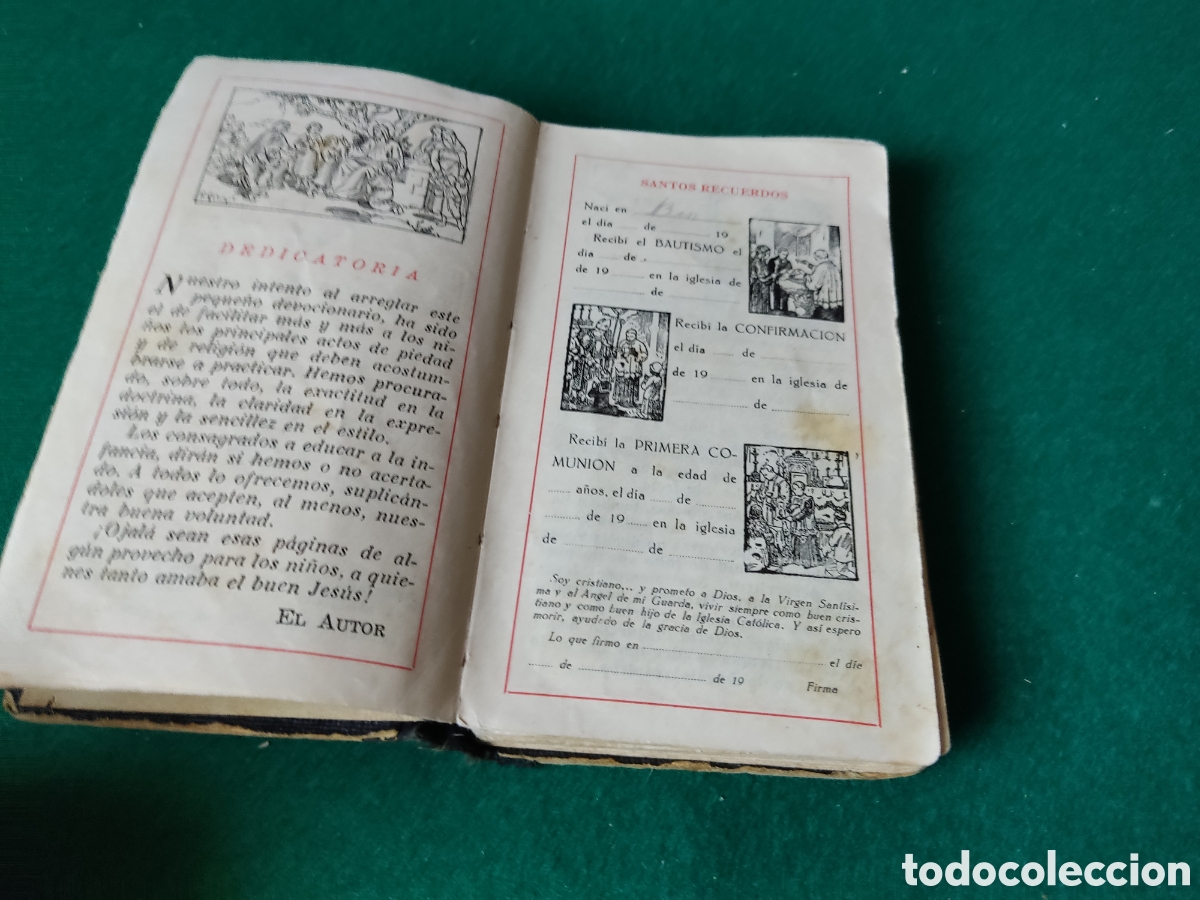 DEDICATORIA
Nuestro intento al arreglar este
pequeño devocionario, ha sido
el de facilitar más y más a los ni-
ños los principales actos de piedad
y de religión que deben acostum-
brarse a practicar. Hemos procura-
do, sobre todo, la exactitud en la
doctrina, la claridad en la expre-
sión y la sencillez en el estilo.
Los consagrados a educar a la in-
fancia, dirán si hemos o no acerta-
do. A todos lo ofrecemos, suplicán-
doles que acepten, al menos, nues-
tra buena voluntad.
¡Ojalá sean esas páginas de al-
gún provecho para los niños, a quie-
nes tanto amaba el buen Jesús!
EL AUTOR
SANTOS RECUERDOS
Nací en
el día de 19
Recibí el BAUTISMO el
día de
de 19 en la iglesia de
de
Recibí la CONFIRMACION
el día de
de 19 en la iglesia de
de
Recibí la PRIMERA CO-
MUNION a la edad de
años, el día de
de 19 en la iglesia
de de
Soy cristiano... y prometo a Dios, a la Virgen Santísi-
ma y al Angel de mi Guarda, vivir siempre como buen cris-
tiano y como buen hijo de la Iglesia Católica. Y así espero
morir, ayudado de la gracia de Dios.
Lo que firmo en el día
de de 19
Firma
todocoleccion